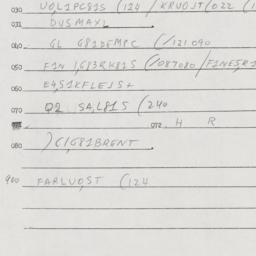 030 UOL1PC81S (124 / KRUOJT(022 (1
031 DUSMAXL
040 GL G81DEMPC (/121.090
050 F1N 1,G83RH81S (/087080/F1NE5R1
060 E4,51KFLEJS+
070 Q2 SA,L81S (240
072. H R
080 )C1,G81BRENT
900 FARLUO,ST (124